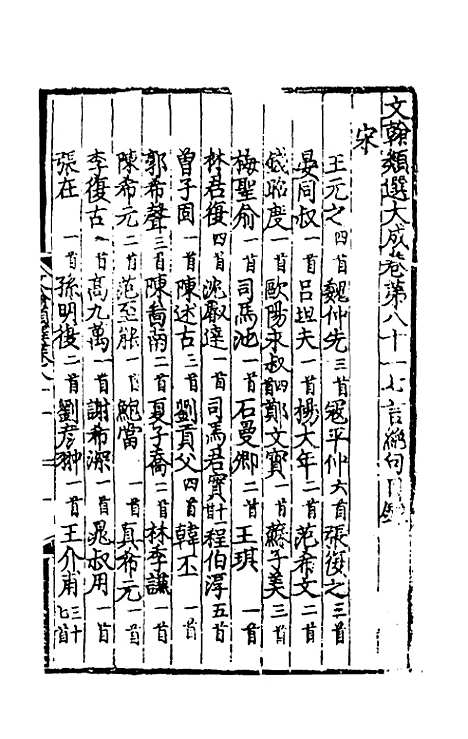 文翰類選大成卷第八十一七言絶句目錄
宋
王元之四首 魏仲先三首 寇平仲六首 張復之三首
晏同叔一首 呂坦夫一首 楊大年二首 范希文二首
錢昭度一首 歐陽永叔四首 鄭文寶一首 蘇子美三首
梅聖俞一首 司馬池一首 石曼卿二首 王琪一首
林君復四首 沈叡達一首 司馬君實廿一首 程伯淳五首
曽子固一首 陳述古三首 劉貢父四首 韓丕一首
郭希聲三首 陳喬南二首 夏子喬二首 林季謙一首
陳希元二首 范至能一首 鮑當一首 真希元一首
李復古一首 高九萬一首 謝希深一首 晁叔用一首
張在一首 孫明復二首 劉彥翀一首 王介甫三十七首